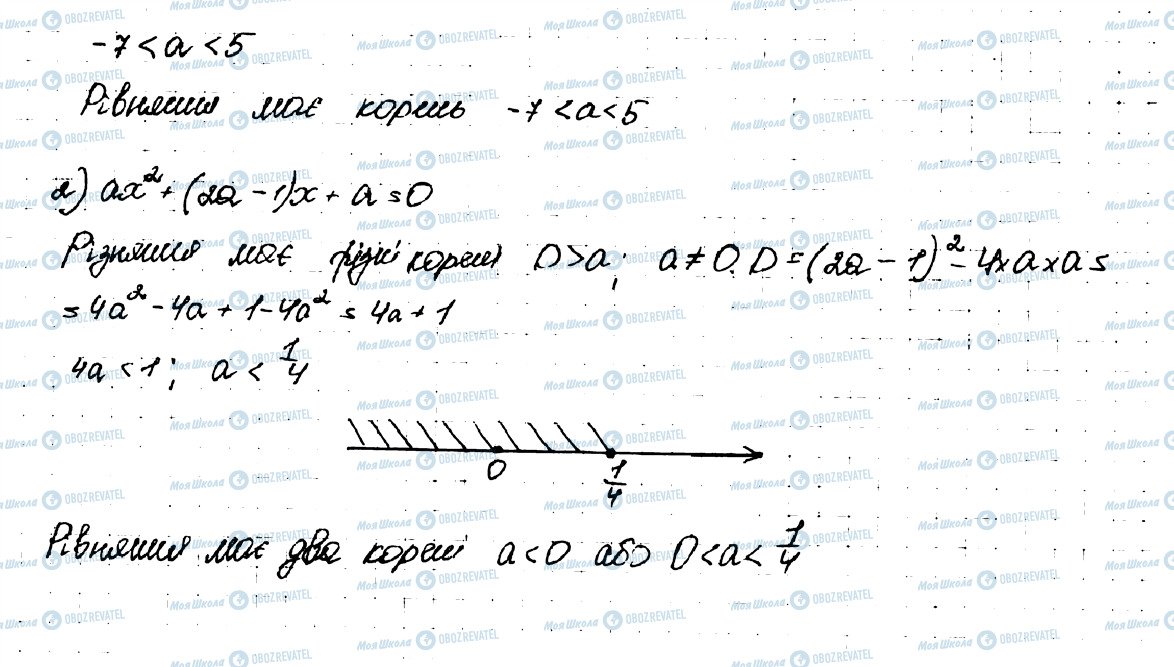 -7 < a < 5
Рівняння має корень -7 < a < 5
2) ax² + (2a - 1)x + a = 0
Різняння має різні корені D > a; a ≠ 0. D = (2a - 1)² - 4xaxa =
= 4a² - 4a + 1 - 4a² = 4a + 1
4a < 1; a < 1/4
0 1/4
Рівняння має два корені a < 0 або 0 < a < 1/4